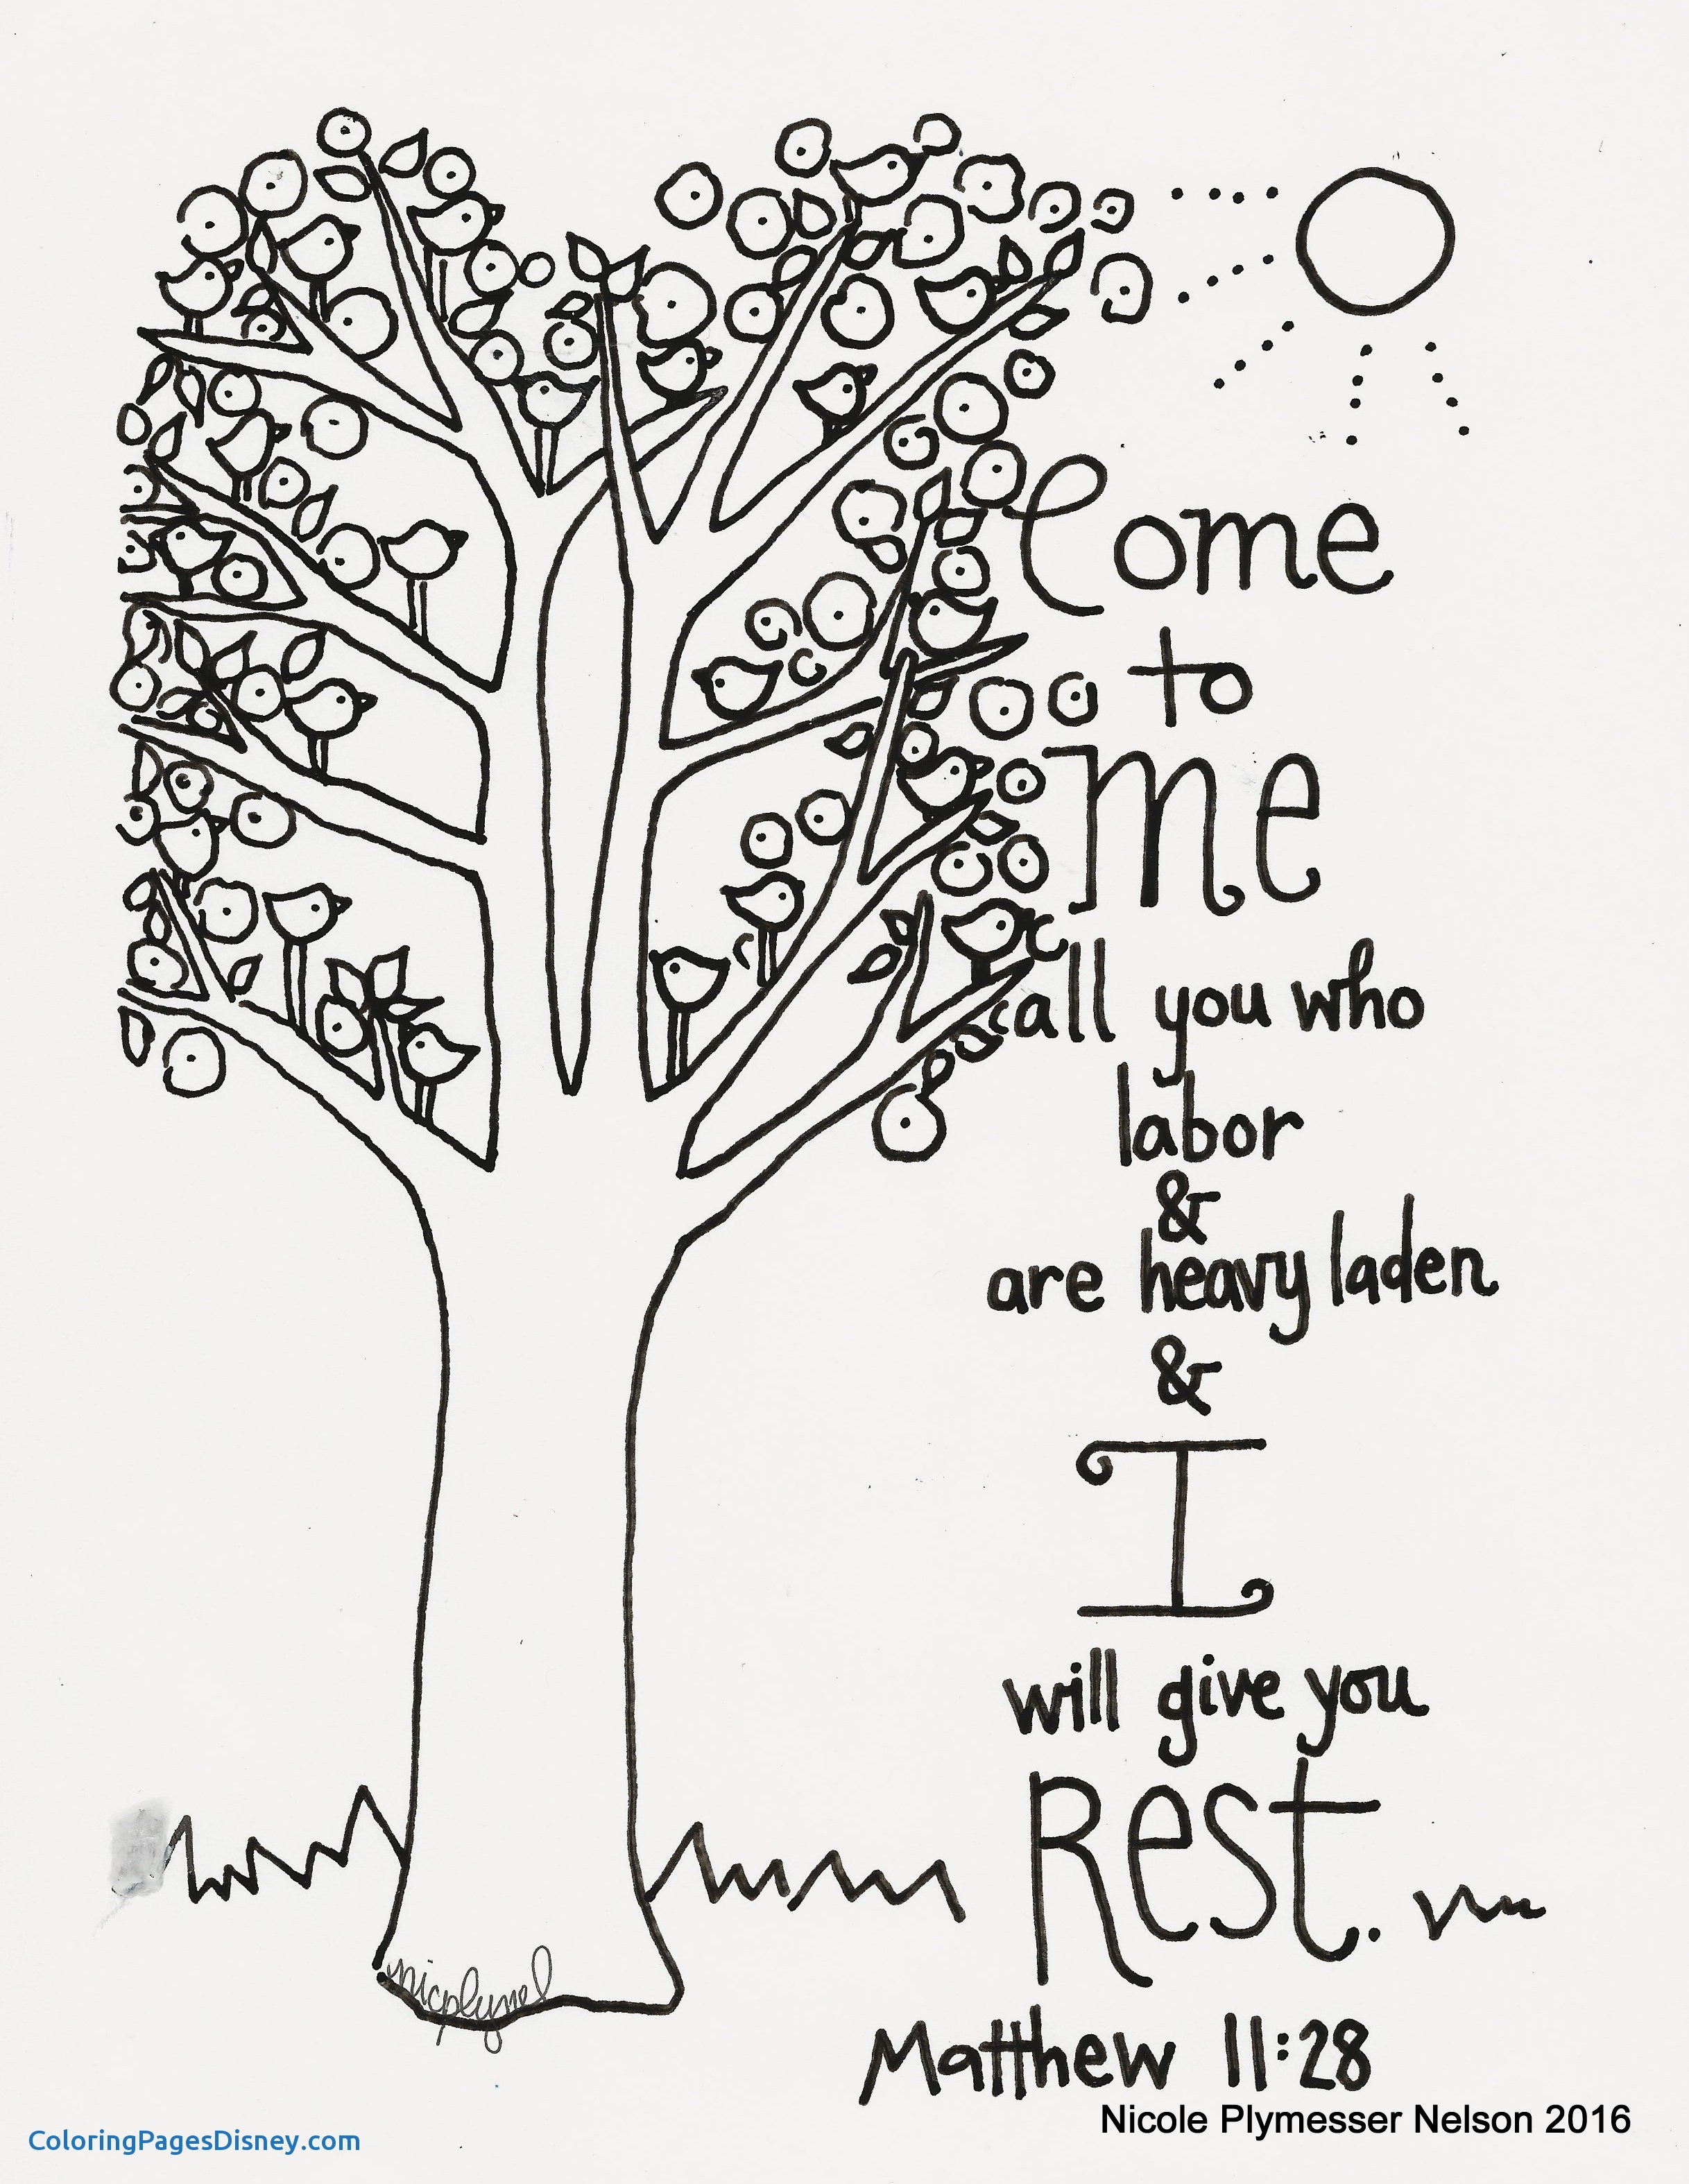 Come
to
me
all you who
labor
&
are heavy laden
&
I
will give you
Rest.
nicplynel
Matthew 11:28
Nicole Plymesser Nelson 2016
ColoringPagesDisney.com